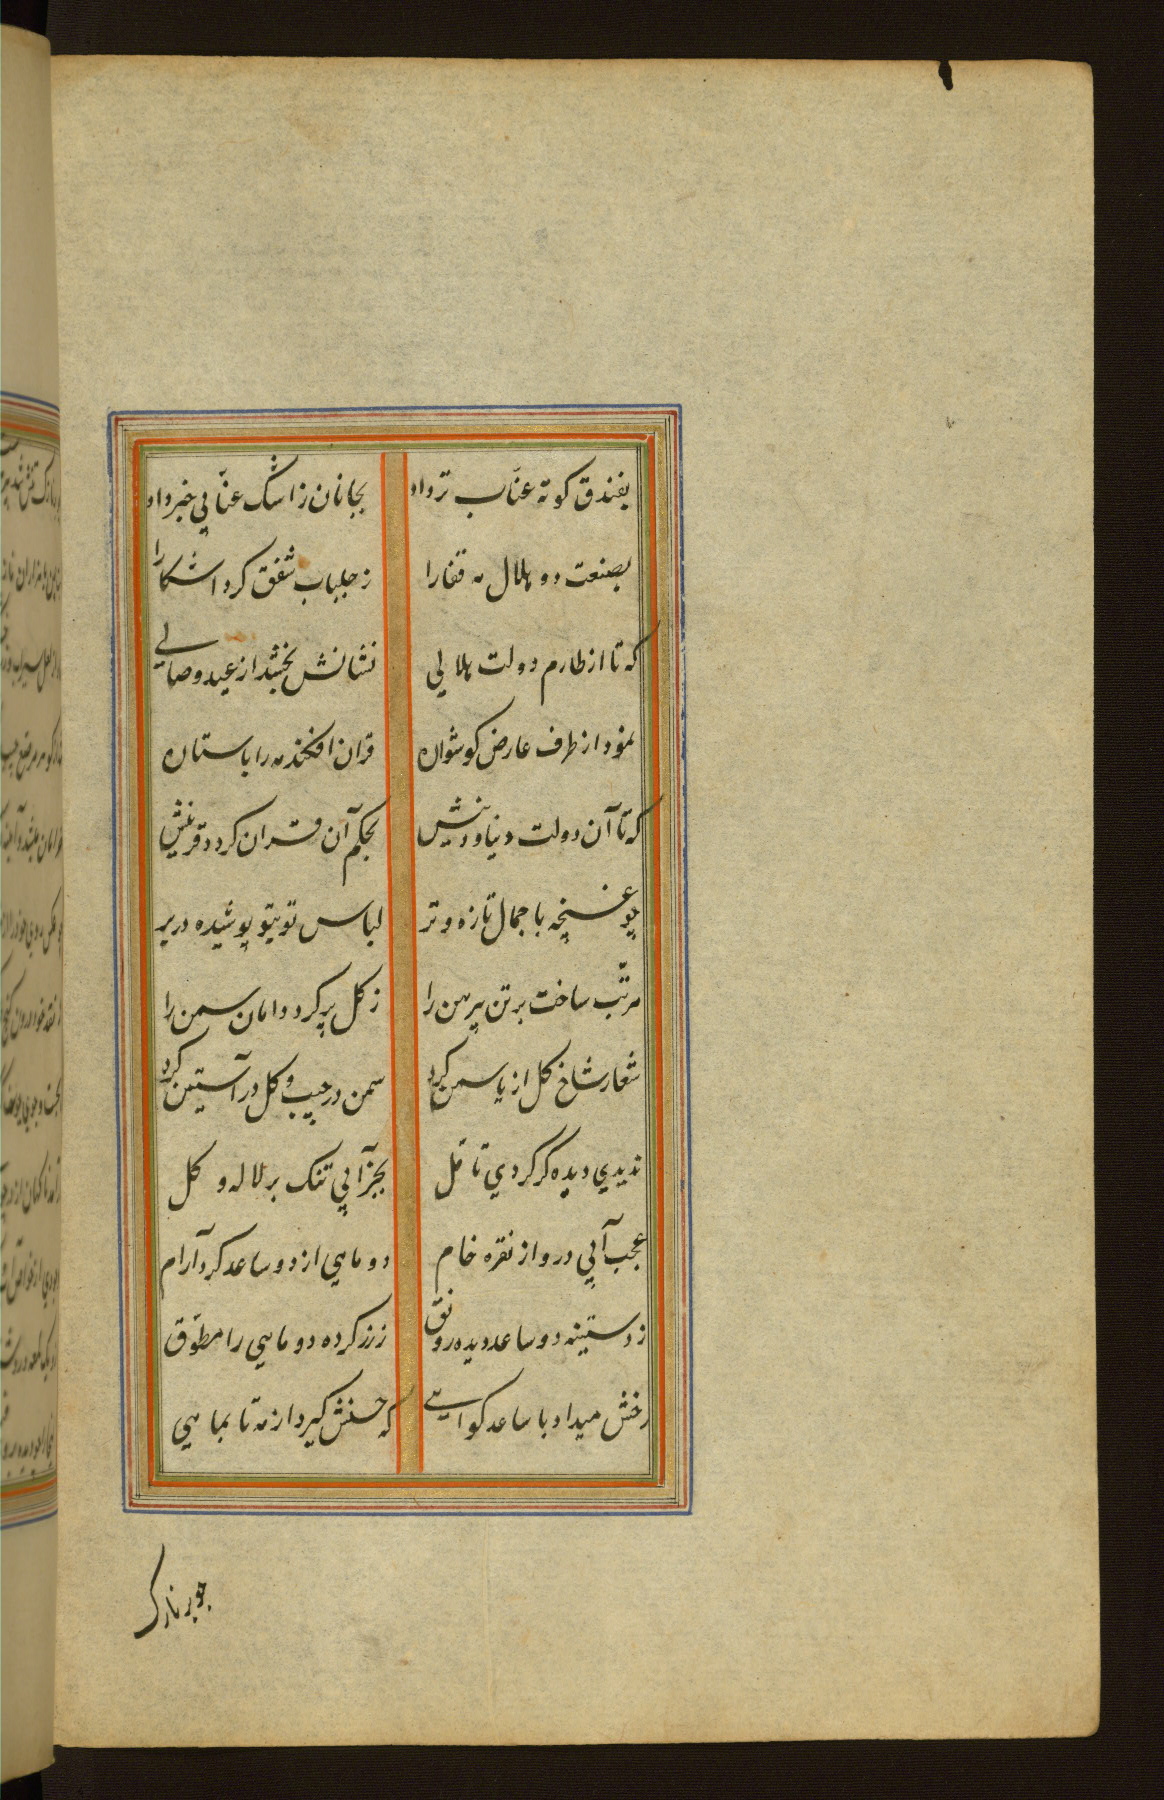 بفندق کونهٔ عناب تر داد بجانان ز اشک عنابی خبر داد
بصنعت دو هلال مه قفا را ز جلباب شفق کرد اشکارا
که تا از طارم دولت هلالی نشانش بخشد از عید وصالی
نمود از طرف عارض کوشواره قران افکند مه را با ستاره
که تا آن دولت دنیا و دینش بحکم آن قران کردد قرینش
چو غنچه با جمال تازه و تر لباس تو بتو پوشیده در بر
مرتب ساخت بر تن پیرهن را ز کل پر کرد دامان سمن را
شعار شاخ کل از یاسمن کرد سمن در جیب و کل در آستین کرد
ندیدی دیده کر کردی تامل بجز آبی تنک بر لاله و کل
عجب آبی درو از نقره خام دو ماهی از دو ساعد کرد آرام
ز دستینه دو ساعد دیده رونق ز زر کرده دو ماهی را مطوق
رخش میداد با ساعد کواهی که حسنش کیرد از مه تا بماهی
چو بر نازک